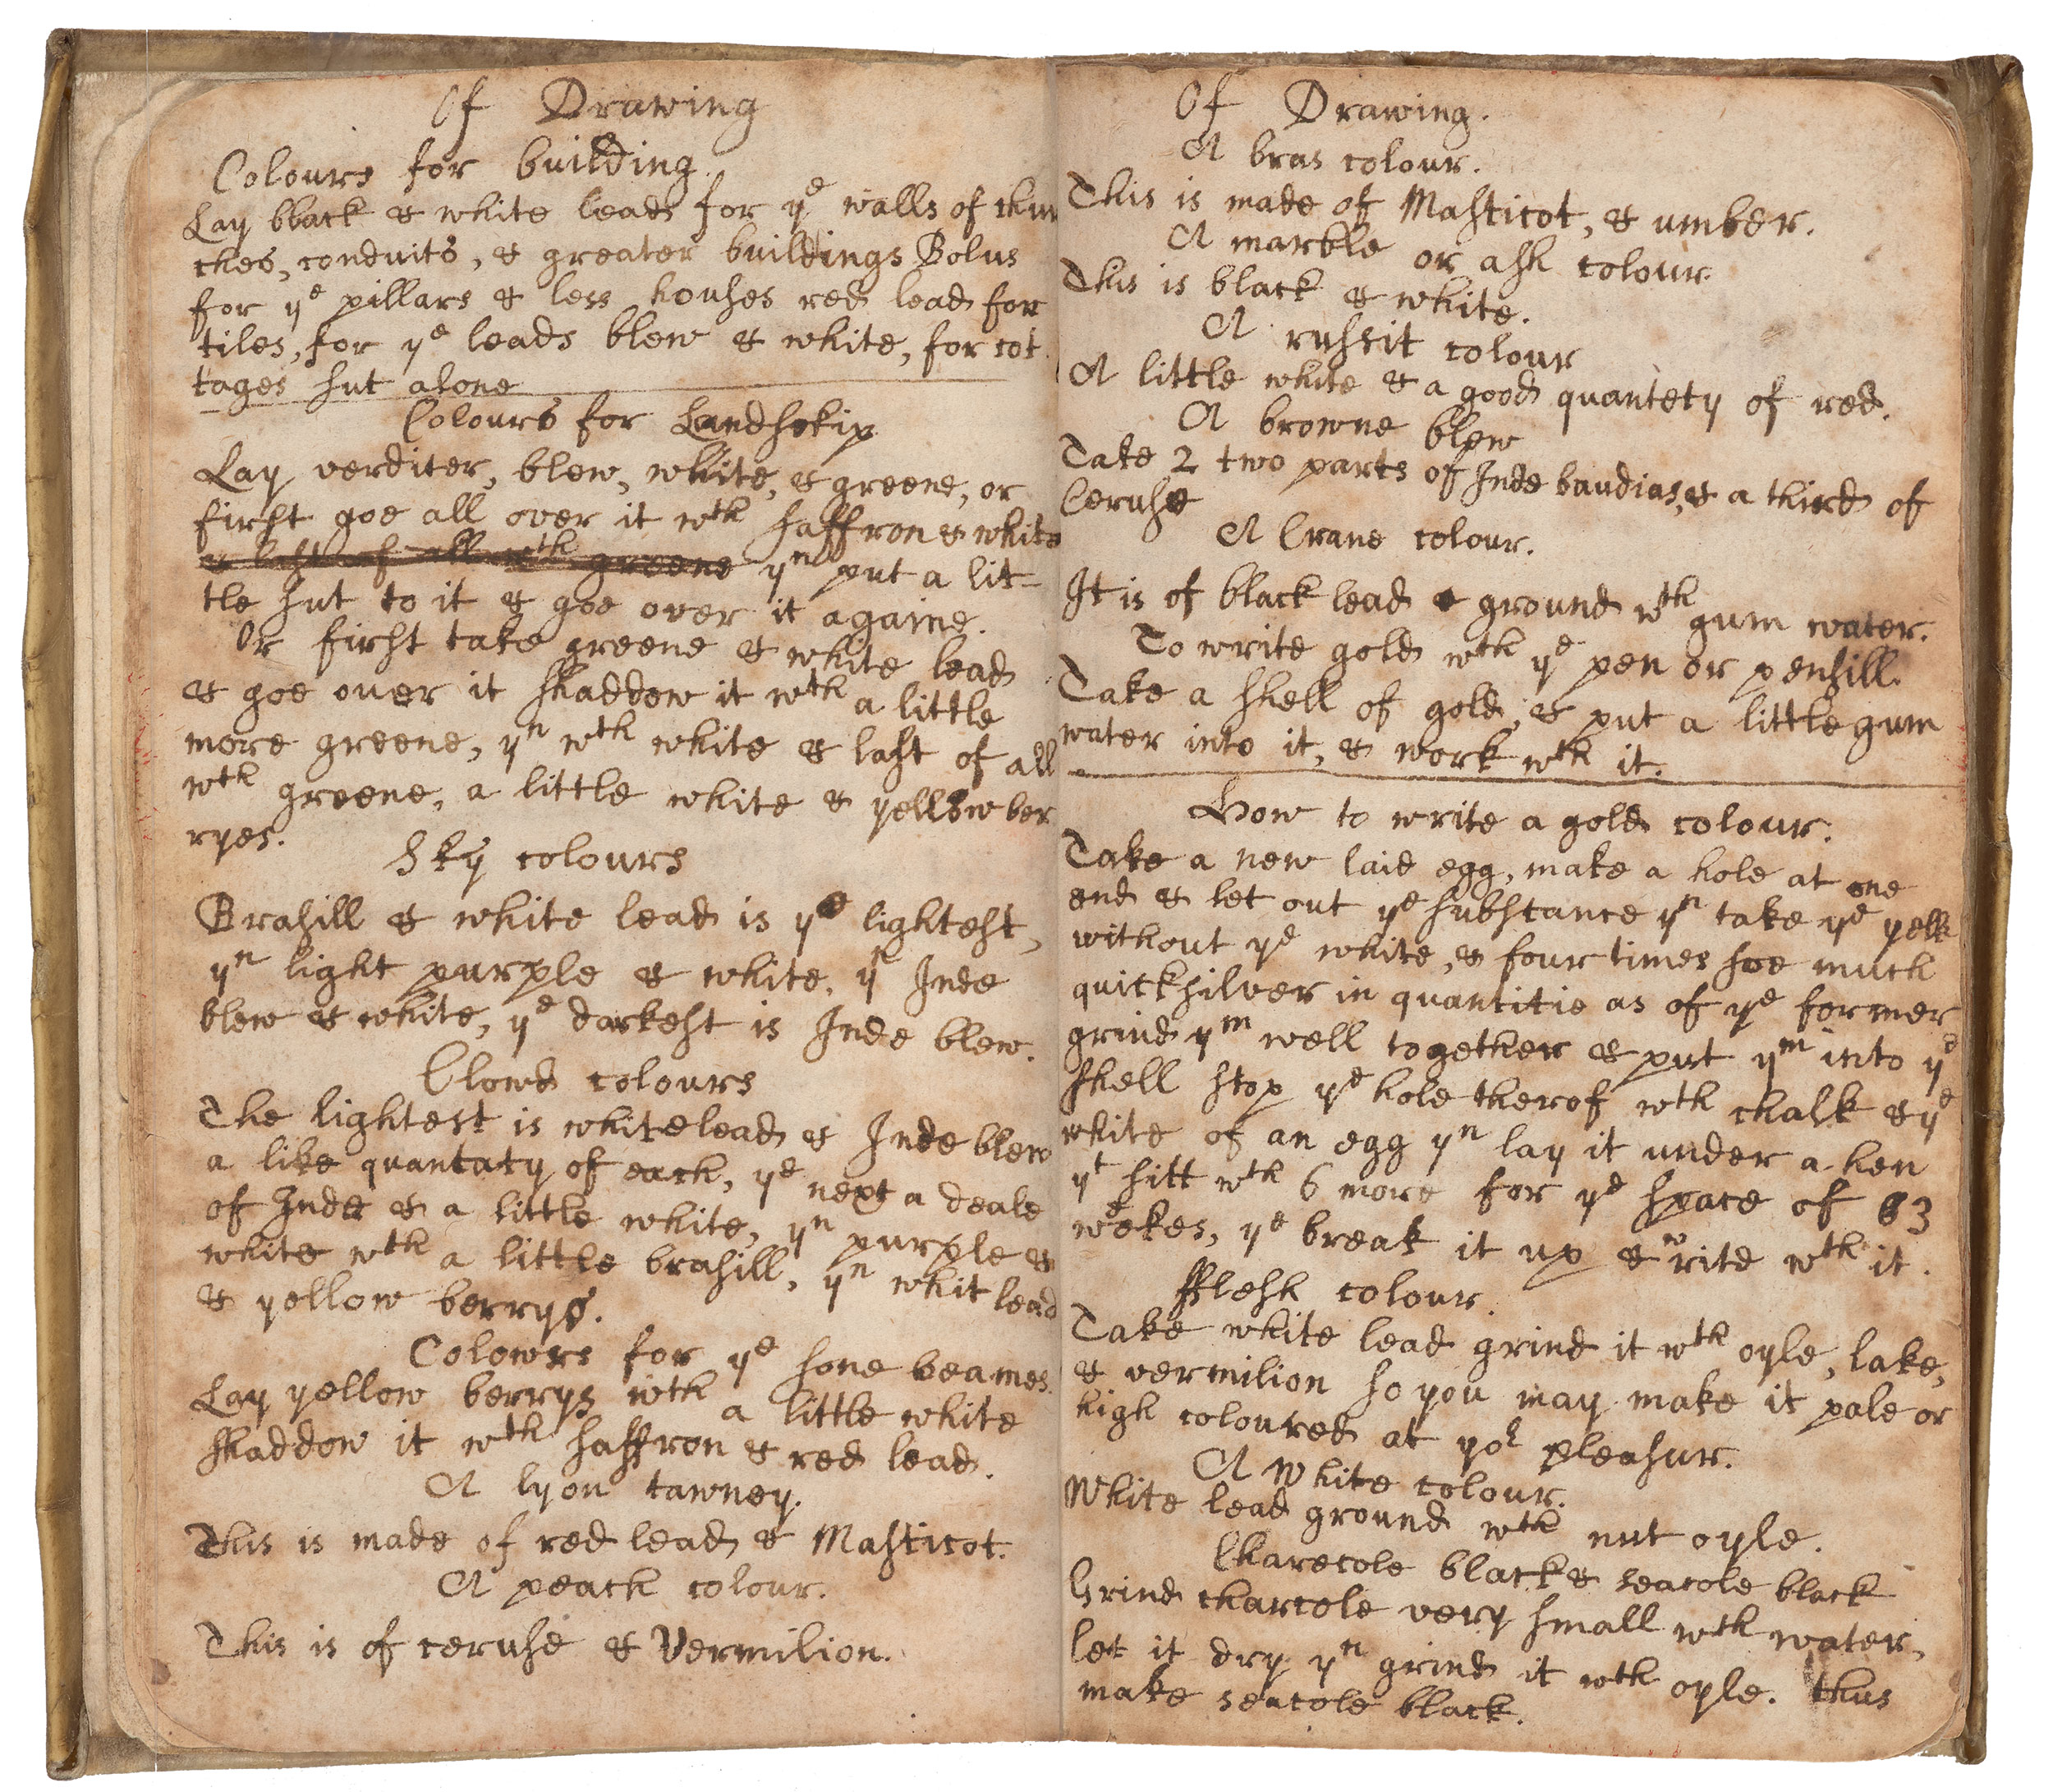 Of Drawing
Colours for building.
Lay black & white lead for ye walls of chur
ches, conduits, & greater buildings Bolus
for ye pillars & less houses red lead for
tiles, for ye leads blew & white, for cot
tages sut alone
Colours for Landskip
Lay verditer, blew, white, & greene, or
first goe all over it wth saffron & white
& last of all wth greene yn put a lit-
tle sut to it & goe over it againe.
Or first take greene & white lead
& goe over it shaddow it wth a little
more greene, yn wth white & last of all
wth greene, a little white & yellow ber
ryes.
Sky colours
Brasill & white lead is ye lightest,
yn light purple & white, yn Inde
blew & white, ye darkest is Inde blew.
Clowd colours
The lightest is white lead & Inde blew
a like quantaty of each, ye next a deale
of Inde & a little white, yn purple &
white wth a little brasill, yn whit lead
& yellow berrys.
Colowrs for ye sone beames.
Lay yellow berrys wth a little white
shaddow it wth saffron & red lead.
A lyon tawney.
This is made of red lead & Masticot.
A peach colour.
This is of ceruse & Vermilion.
Of Drawing.
A bras colour.
This is made of Masticot, & umber.
A marble or ash colour.
This is black & white.
A russit colour
A little white & a good quantety of red.
A browne blew
Take 2 two parts of Inde baudias, & a third of
Ceruse
A Crane colour.
It is of black lead ground wth gum water.
To write gold wth ye pen or pensill.
Take a shell of gold, & put a little gum
water into it, & work wth it.
How to write a gold colour.
Take a new laid egg, make a hole at one
end & let out ye substance yn take ye yelk
without ye white, & four times soe much
quicksilver in quantitie as of ye former
grind ym well together & put ym into ye
shell stop ye hole therof wth chalk & ye
white of an egg yn lay it under a hen
yt sitt wth 6 more for ye space of 3
weekes, ye break it up & write wth it.
fflesh colour.
Take white lead grind it wth oyle, lake,
& vermilion so you may make it pale or
high coloured at yor pleasur.
A white colour.
White lead ground wth nut oyle.
Charecole black & seacole black
Grind charcole very small wth water,
let it dry yn grind it wth oyle. thus
make seacole black.